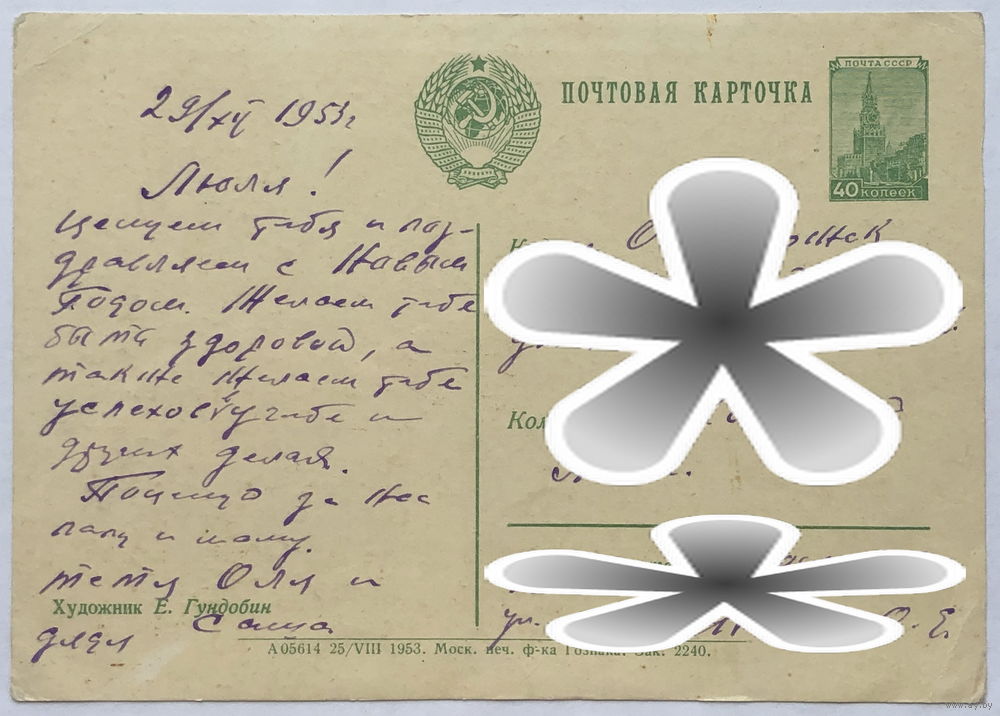 29/XII 1953 г
ПОЧТОВАЯ КАРТОЧКА
ПОЧТА СССР
40 КОПЕЕК
Люля!
Целуем тебя и поз-
дравляем с Новым
Годом. Желаем тебе
быть здоровой, а
также желаем тебе
успехов в учебе и
других делах.
Поцелуй за нас
папу и маму.
тетя Оля и
Художник Е. Гундобин
дядя Саша
ул. О. Е.
А 05614 25/VIII 1953. Моск. печ. ф-ка Гознака. Зак. 2240.
www.ay.by